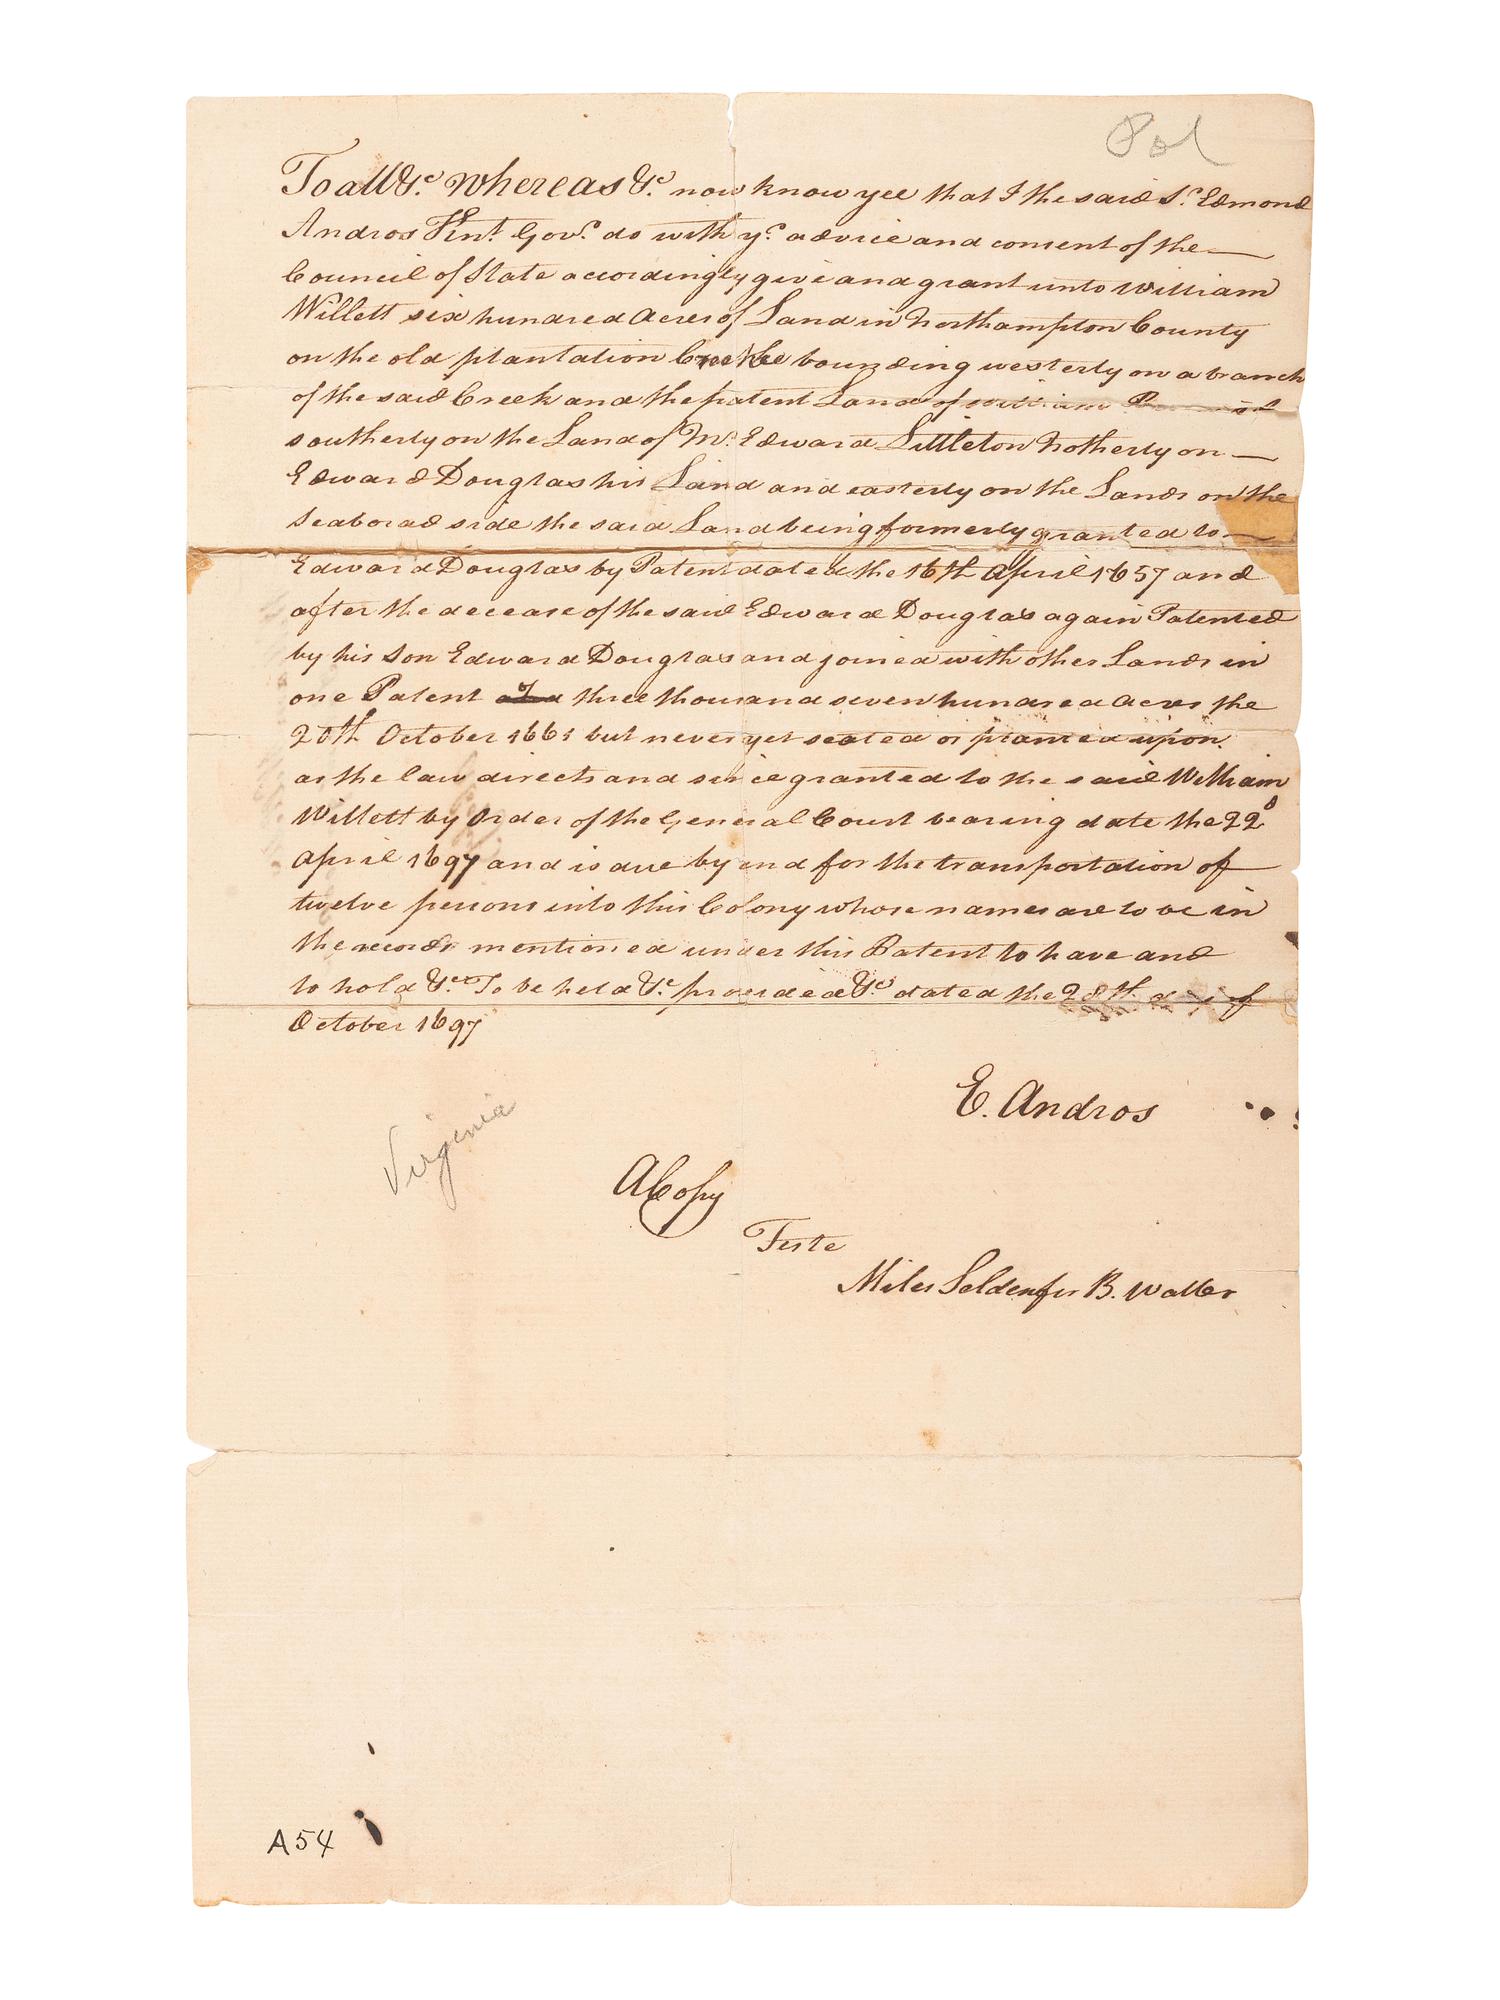 Pol
To all &c. Whereas &c. now know yee that I the said Sr. Edmond
Andros Knt. Govr. do with ye. advice and consent of the
Council of State accordingly give and grant unto William
Willett six hundred acres of Land in Northampton County
on the old plantation Creeke bounding westerly on a branch
of the said Creek and the patent Land of William
southerly on the Land of Mr. Edward Littleton Notherly on
Edward Douglas his Land and easterly on the Lands on the
Seaborad side the said Land being formerly granted to
Edward Douglas by Patent dated the 16th April 1657 and
after the decease of the said Edward Douglas again Patented
by his Son Edward Douglas and joined with other Lands in
one Patent of three thousand seven hundred acres the
20th October 1661 but never yet seated or planted upon
as the law directs and since granted to the said William
Willett by Order of the General Court bearing date the 22d
April 1697 and is due by and for the transportation of
twelve persons into this Colony whose names are to be in
the records mentioned under this Patent to have and
to hold &c. To be held &c. provided &c. dated the 28th day of
October 1697
E. Andros
Virginia
A Copy
Teste
Miles Selden for B. Waller
A54